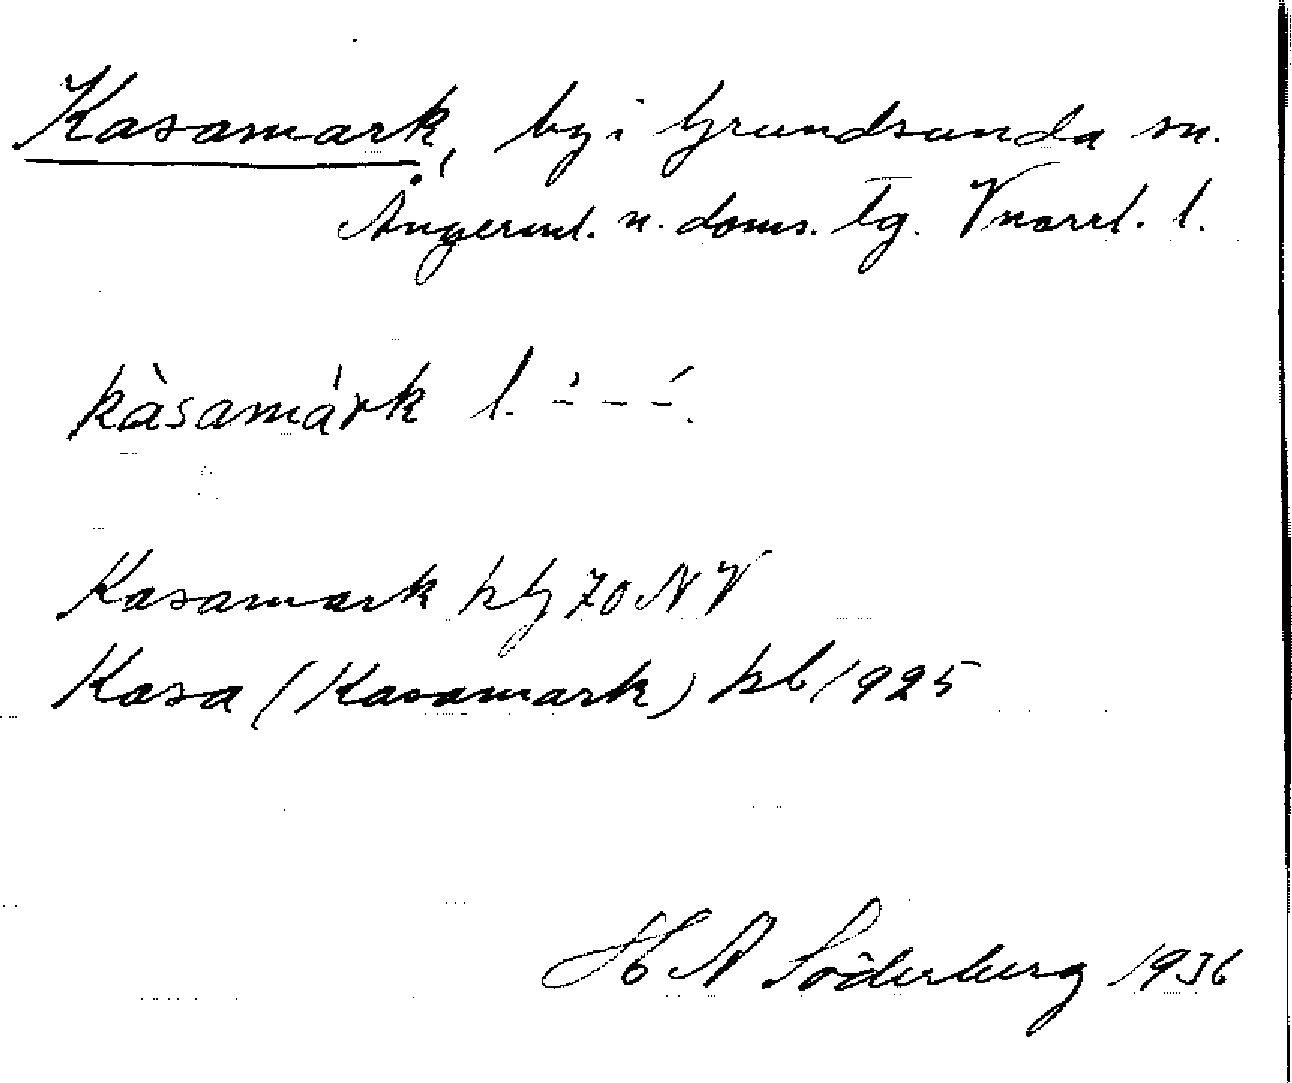 Kasamark, by i Grundsunda sn.
Ångerml. n. doms. tg. Vnorrl. l.
kàsamárk l. ̀ - - ́.
Kasamark hbg 70 NV
Kasa (Kasamark) kb 1925
H A Söderberg 1936